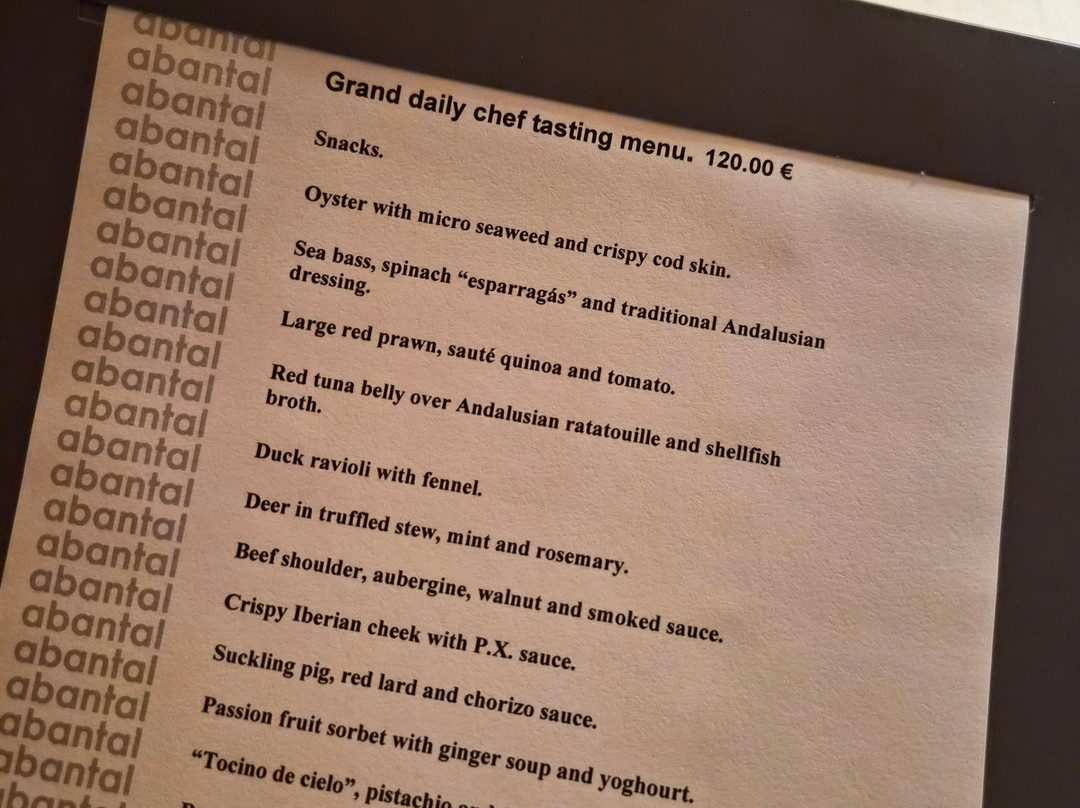 abantal
abantal
abantal
abantal
abantal
abantal
abantal
abantal
abantal
abantal
abantal
abantal
abantal
abantal
abantal
abantal
abantal
abantal
abantal
abantal
abantal
abantal
abantal
Grand daily chef tasting menu. 120.00 €
Snacks.
Oyster with micro seaweed and crispy cod skin.
Sea bass, spinach “esparragás” and traditional Andalusian
dressing.
Large red prawn, sauté quinoa and tomato.
Red tuna belly over Andalusian ratatouille and shellfish
broth.
Duck ravioli with fennel.
Deer in truffled stew, mint and rosemary.
Beef shoulder, aubergine, walnut and smoked sauce.
Crispy Iberian cheek with P.X. sauce.
Suckling pig, red lard and chorizo sauce.
Passion fruit sorbet with ginger soup and yoghourt.
“Tocino de cielo”, pistachio